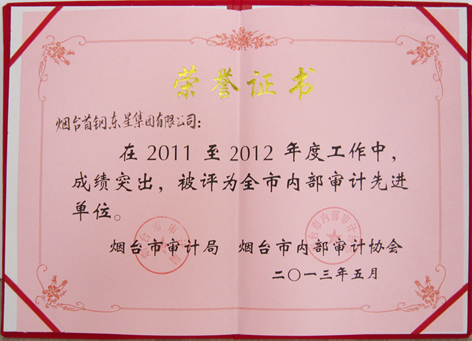 荣誉证书
烟台首钢东星集团有限公司：
在 2011 至 2012 年度工作中，
成绩突出，被评为全市内部审计先进
单位。
烟台市审计局 烟台市内部审计协会
二〇一三年五月